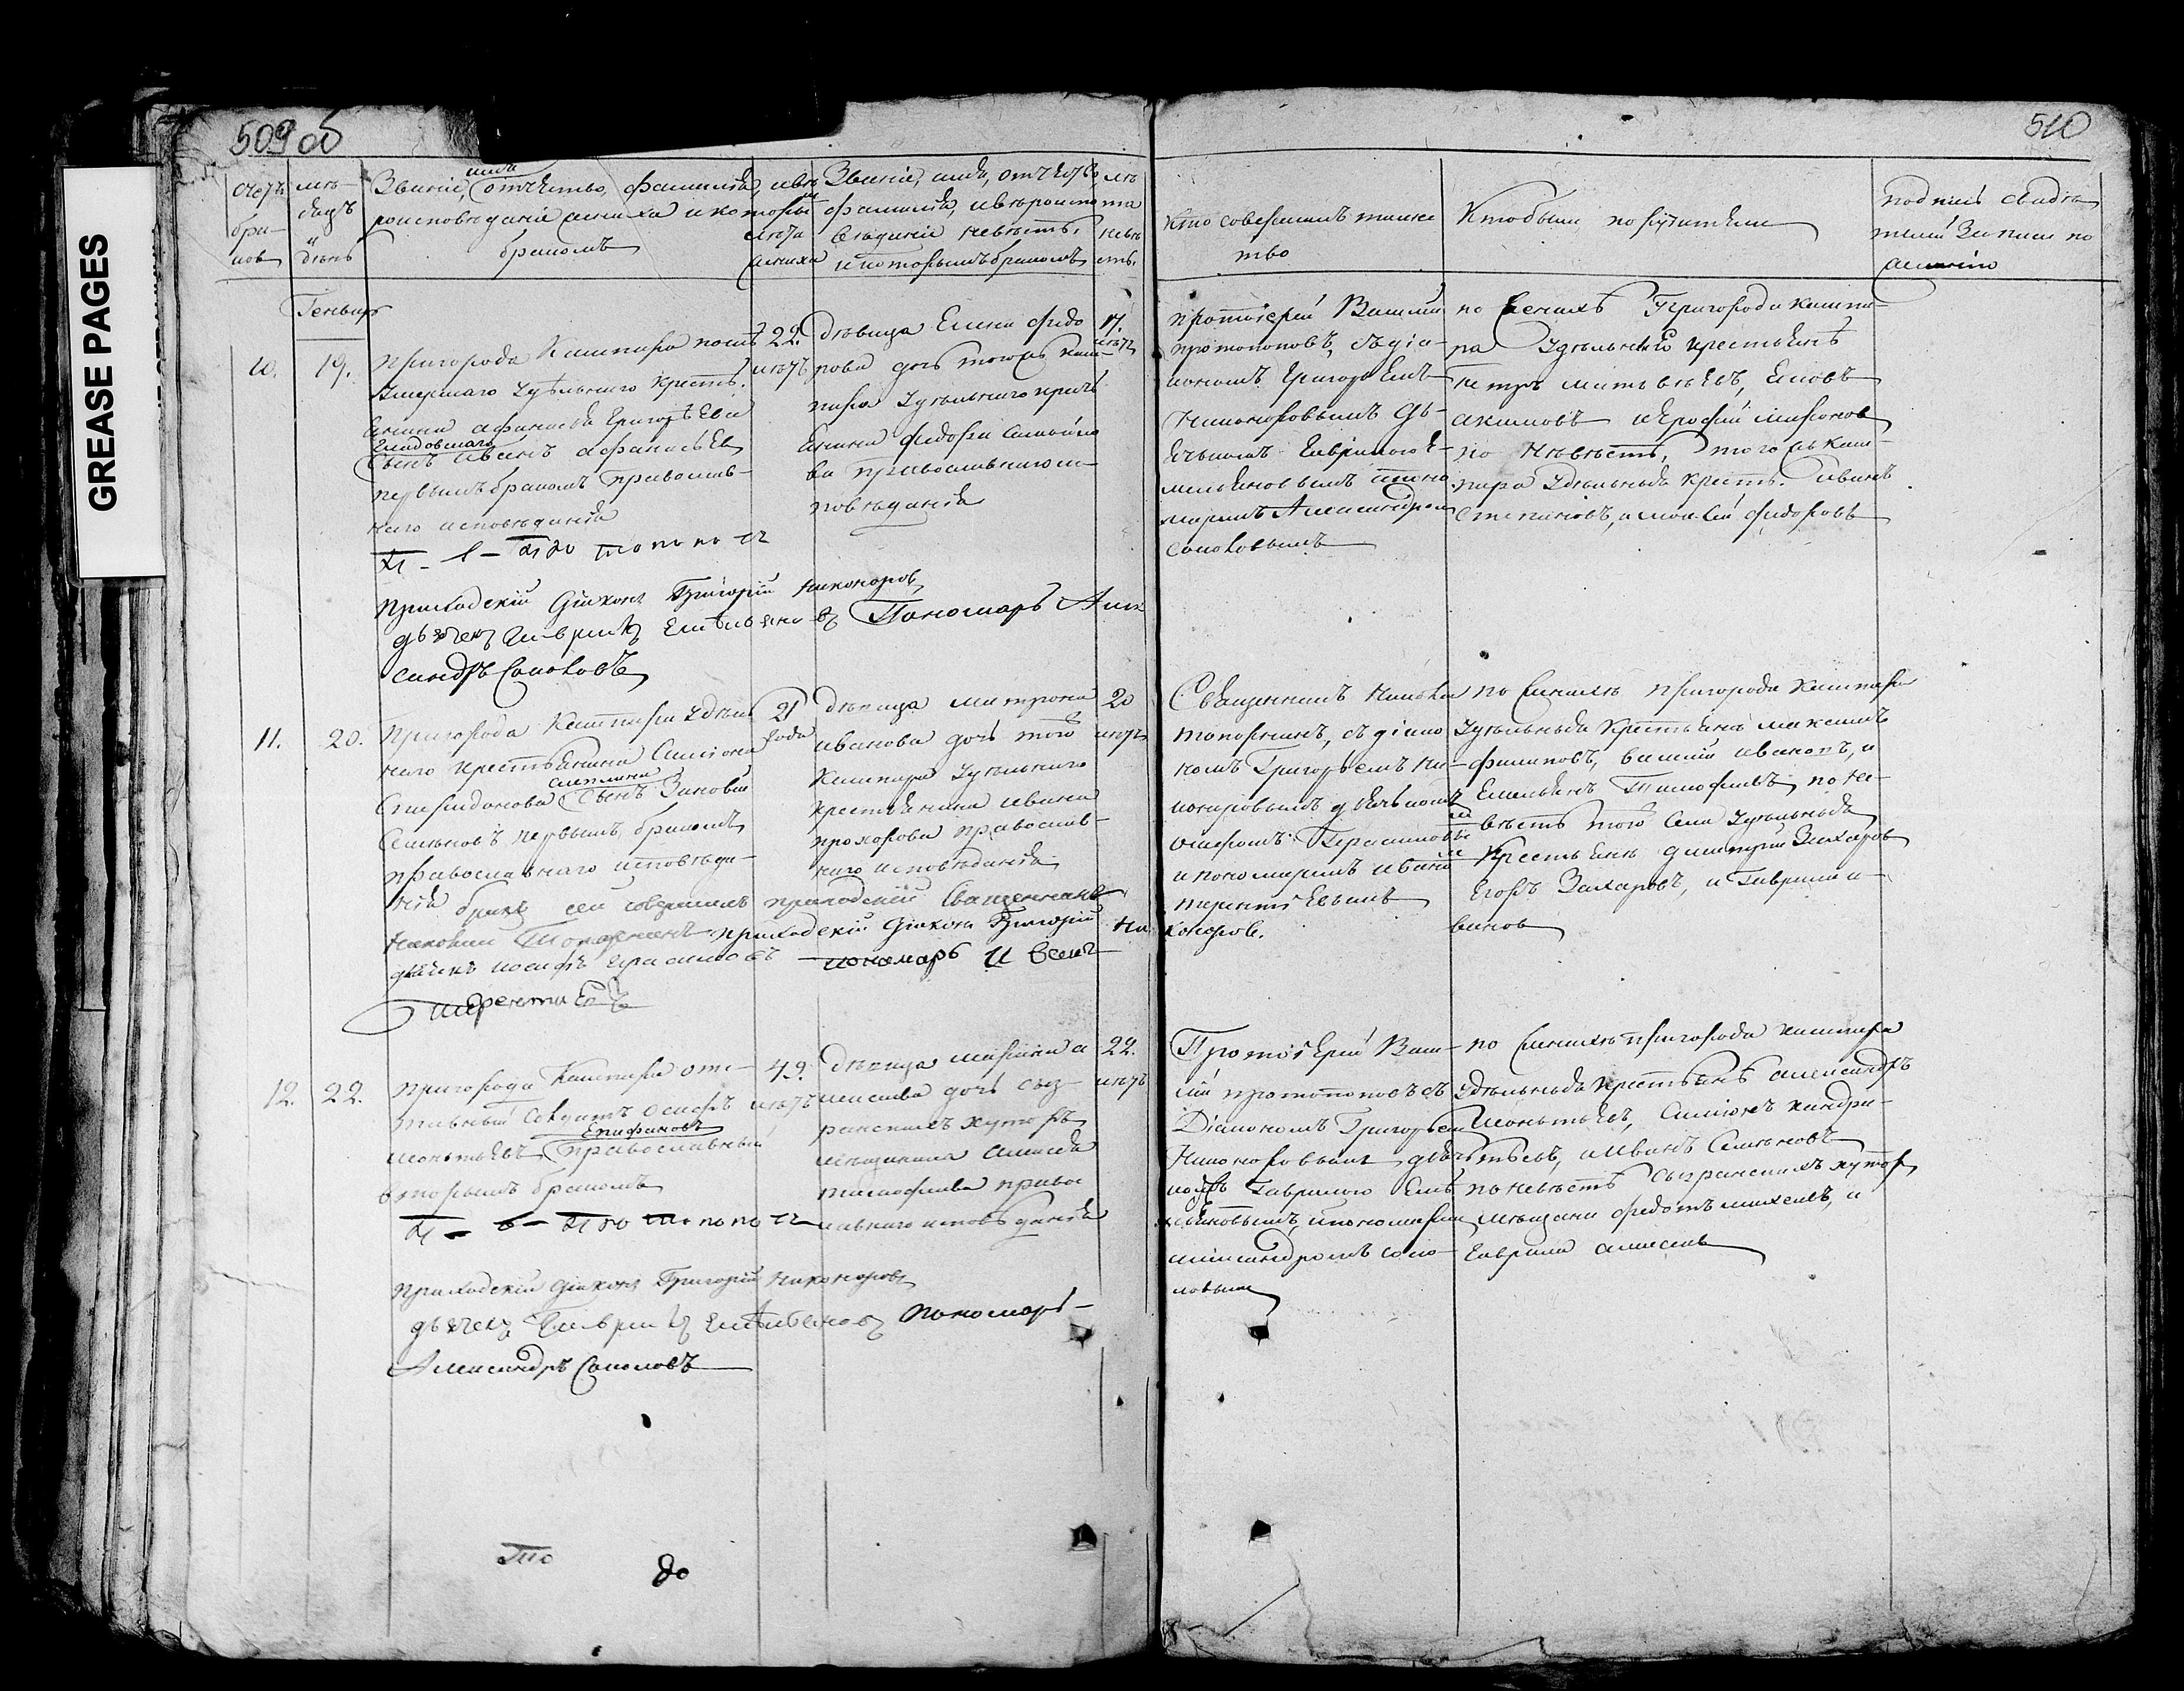 GREASE PAGES
509 об
510
счетъ
бра-
ков
мѣ-
сяцъ
и
день
имя
Званіе, отчество, фамилія, и вѣ
роисповѣданіе жениха и которымъ
бракомъ
лѣта
жениха
Званіе, имя, отчество,
фамилія, и вѣроиспо
вѣданіе невѣсты,
и которымъ бракомъ
лѣ
та
невѣ
сты.
Кто совершилъ таинс
тво
Кто были поручители
подпись свидѣ
телей записи по
желанію
Генварь
10.
19.
Пригорода Кашпира послѣ
умершаго удѣльнаго крестъ.
янина Афанасія Григорьева
сынъ Иванъ Афанасьевъ
первымъ бракомъ православ-
наго исповѣданія
22.
лѣтъ
дѣвица Елена Федо
рова дочь тогожъ Каш-
пира удѣльнаго кресть
янина Федора
православнаго ис-
повѣданія
17.
лѣтъ
протоіерей Василій
протопоповъ, съ діа-
кономъ Григорьемъ
Никоноровымъ дь-
ячькомъ Гавриломъ Е-
мельяновымъ и поно
маремъ Александромъ
Соколовымъ
по женихѣ Пригорода Кашпи-
ра удѣльныя крестьянѣ
Петръ Матвѣевъ,
Акимовъ и Ерофей Миронов
по невѣстѣ, того жъ Каш-
пира удѣльныя крестъ. Иванъ
Степановъ, и Федоровъ
Приходскій діаконъ Григорій Никоноров
дьячекъ Гаврилъ Емельяновъ Пономарь Алек
сандръ Соколовъ
11.
20.
Пригорода Кашпира удѣль
наго крестьянина Симіона
Спиридонова сынъ Зиновій
Семеновъ первымъ бракомъ
православнаго исповѣда-
нія
21
года
дѣвица Матрона
Иванова дочь того
Кашпира удѣльнаго
крестьянина Ивана
Прохорова православ-
наго исповѣданія
20
лѣтъ
Священникъ Николай
Топорнинъ, съ діако
номъ Григорьемъ Ни-
коноровымъ дьячькомъ
Іосифомъ Герасимовы
и пономаремъ Ивано
Терентіевымъ
по женихѣ пригорода Кашпира
удѣльныя крестьянѣ Максимъ
Филиповъ, Василій Ивановъ, и
Емельянъ Тимофѣевъ по не-
вѣстѣ того села удѣльныя
крестьянѣ Дмитрій Захаровъ
Егоръ Захаровъ, и Гаврила и-
вановъ
бракъ сей совершилъ приходскій Священникъ
Николай Топорнинъ приходскій діаконъ Григорій Ни
коноров.
дьячекъ Іосифъ Герасимовъ пономарь Иванъ
Терентіевъ
12.
22.
Пригорода Кашпира отс-
тавный солдатъ Осипъ
Епифановъ
Леонтьевъ православный
вторымъ бракомъ
49.
лѣтъ
дѣвица Марфа а
лексѣева дочь сыз-
ранскихъ хуторъ
мѣщанина Алексѣя
Тимофеева право
славнаго исповѣданія
22.
лѣтъ
Протоіерей Васи-
лій протопоповъ съ
Діакономъ Григорьемъ
Никоноровымъ дьячь
комъ Гавриломъ Емѣ
льяновымъ, и пономаремъ
Александромъ соко-
ловымъ
по женихѣ пригорода Кашпира
удѣльныя крестьянѣ Александръ
Леонтьевъ, Симіонъ Кондра-
тьевъ, и Иванъ Семеновъ
по невѣстѣ Сызранскихъ хутор
мѣщани Федотъ и
Гаврила Алексѣев
Приходскій діаконъ Григорій Никоноровъ
дьячекъ Гаврилъ Емельяновъ пономарь
Александръ Соколовъ
По
до